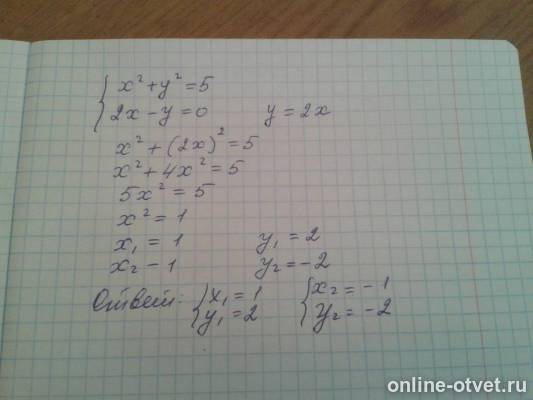 { x² + y² = 5
{ 2x - y = 0 y = 2x
x² + (2x)² = 5
x² + 4x² = 5
5x² = 5
x² = 1
x₁ = 1 y₁ = 2
x₂ - 1 y₂ = -2
Ответ: { x₁ = 1 { x₂ = -1
{ y₁ = 2 { y₂ = -2
online-otvet.ru